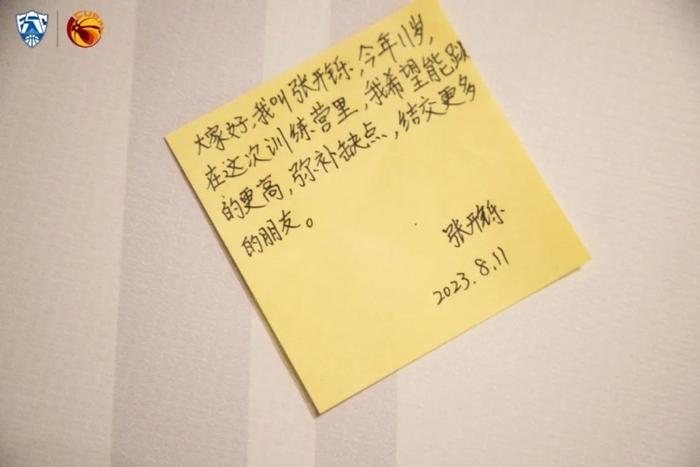 大家好，我叫张开铄，今年11岁，
在这次训练营里，我希望能跳
的更高，弥补缺点，结交更多
的朋友。
张开铄
2023.8.11